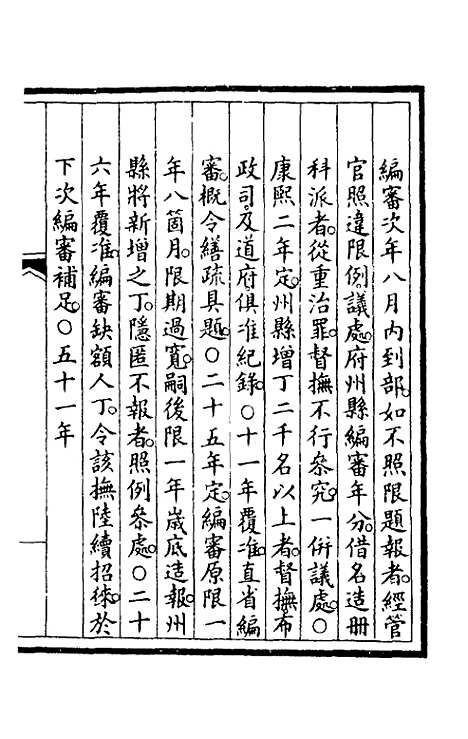 編審次年八月內到部。如不照限題報者。經管
官照違限例。議處。府州縣編審年分。借名造册
科派者。從重治罪。督撫不行叅究。一併議處。○
康熙二年定。州縣增丁二千名以上者。督撫布
政司。及道府俱准紀錄。○十一年覆准。直省編
審。概令繕疏具題。○二十五年定。編審原限一
年八箇月。限期過寬。嗣後限一年歲底造報。州
縣將新增之丁。隱匿不報者。照例叅處。○二十
六年覆准。編審缺額人丁。令該撫陸續招徠。於
下次編審補足。○五十一年